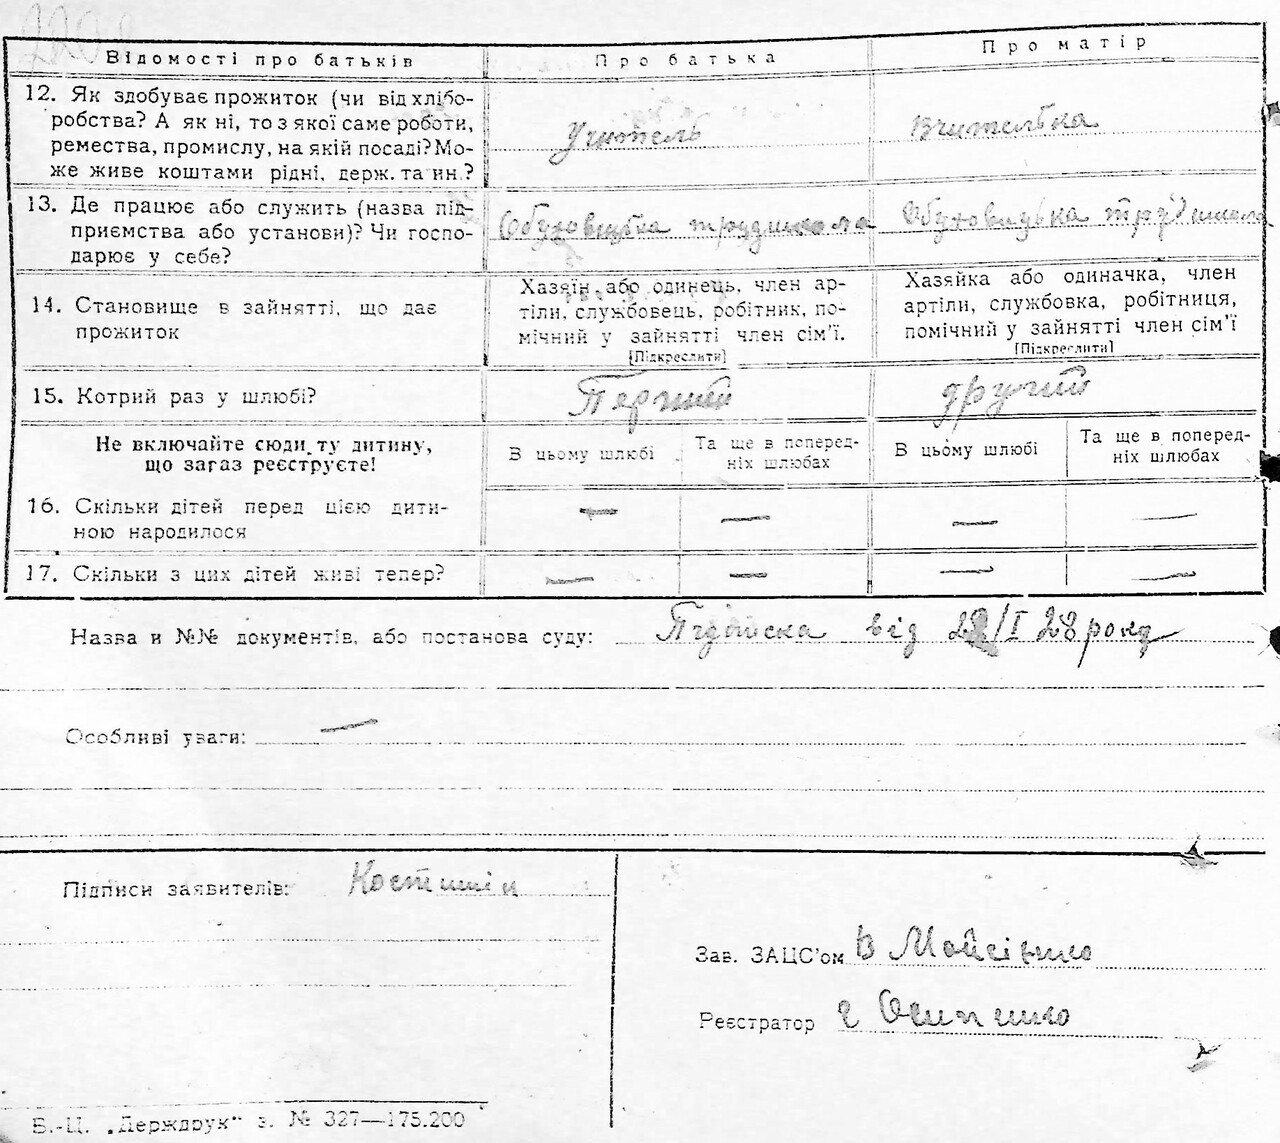 Відомості про батьків
Про батька
Про матір
12. Як здобуває прожиток (чи від хлібо-
робства? А як ні, то з якої саме роботи,
ремества, промислу, на якій посаді? Мо-
же живе коштами рідні, держ. та ин.?
Учитель
Вчителька
13. Де працює або служить (назва під-
приємства або установи)? Чи госпо-
дарює у себе?
Обуховицька трудшкола
Обуховицька труд школа
14. Становище в зайнятті, що дає
прожиток
Хазяїн або одинець, член ар-
тіли, службовець, робітник, по-
мічний у зайнятті член сім'ї.
[Підкреслити]
Хазяйка або одиначка, член
артіли, службовка, робітниця,
помічний у зайнятті член сім'ї
[Підкреслити]
15. Котрий раз у шлюбі?
Перший
другий
Не включайте сюди ту дитину,
що зараз реєструєте!
В цьому шлюбі
Та ще в поперед-
ніх шлюбах
В цьому шлюбі
Та ще в поперед-
ніх шлюбах
16. Скільки дітей перед цією дити-
ною народилося
— — — —
17. Скільки з цих дітей живі тепер?
— — — —
Назва и №№ документів, або постанова суду: Підписка від /I 28 року
Особливі уваги: —
Підписи заявителів: Костишин
Зав. ЗАЦС'ом В Мойсієнко
Реєстратор Осипенко
Б.-Ц. „Держдрук" з. № 327—175.200